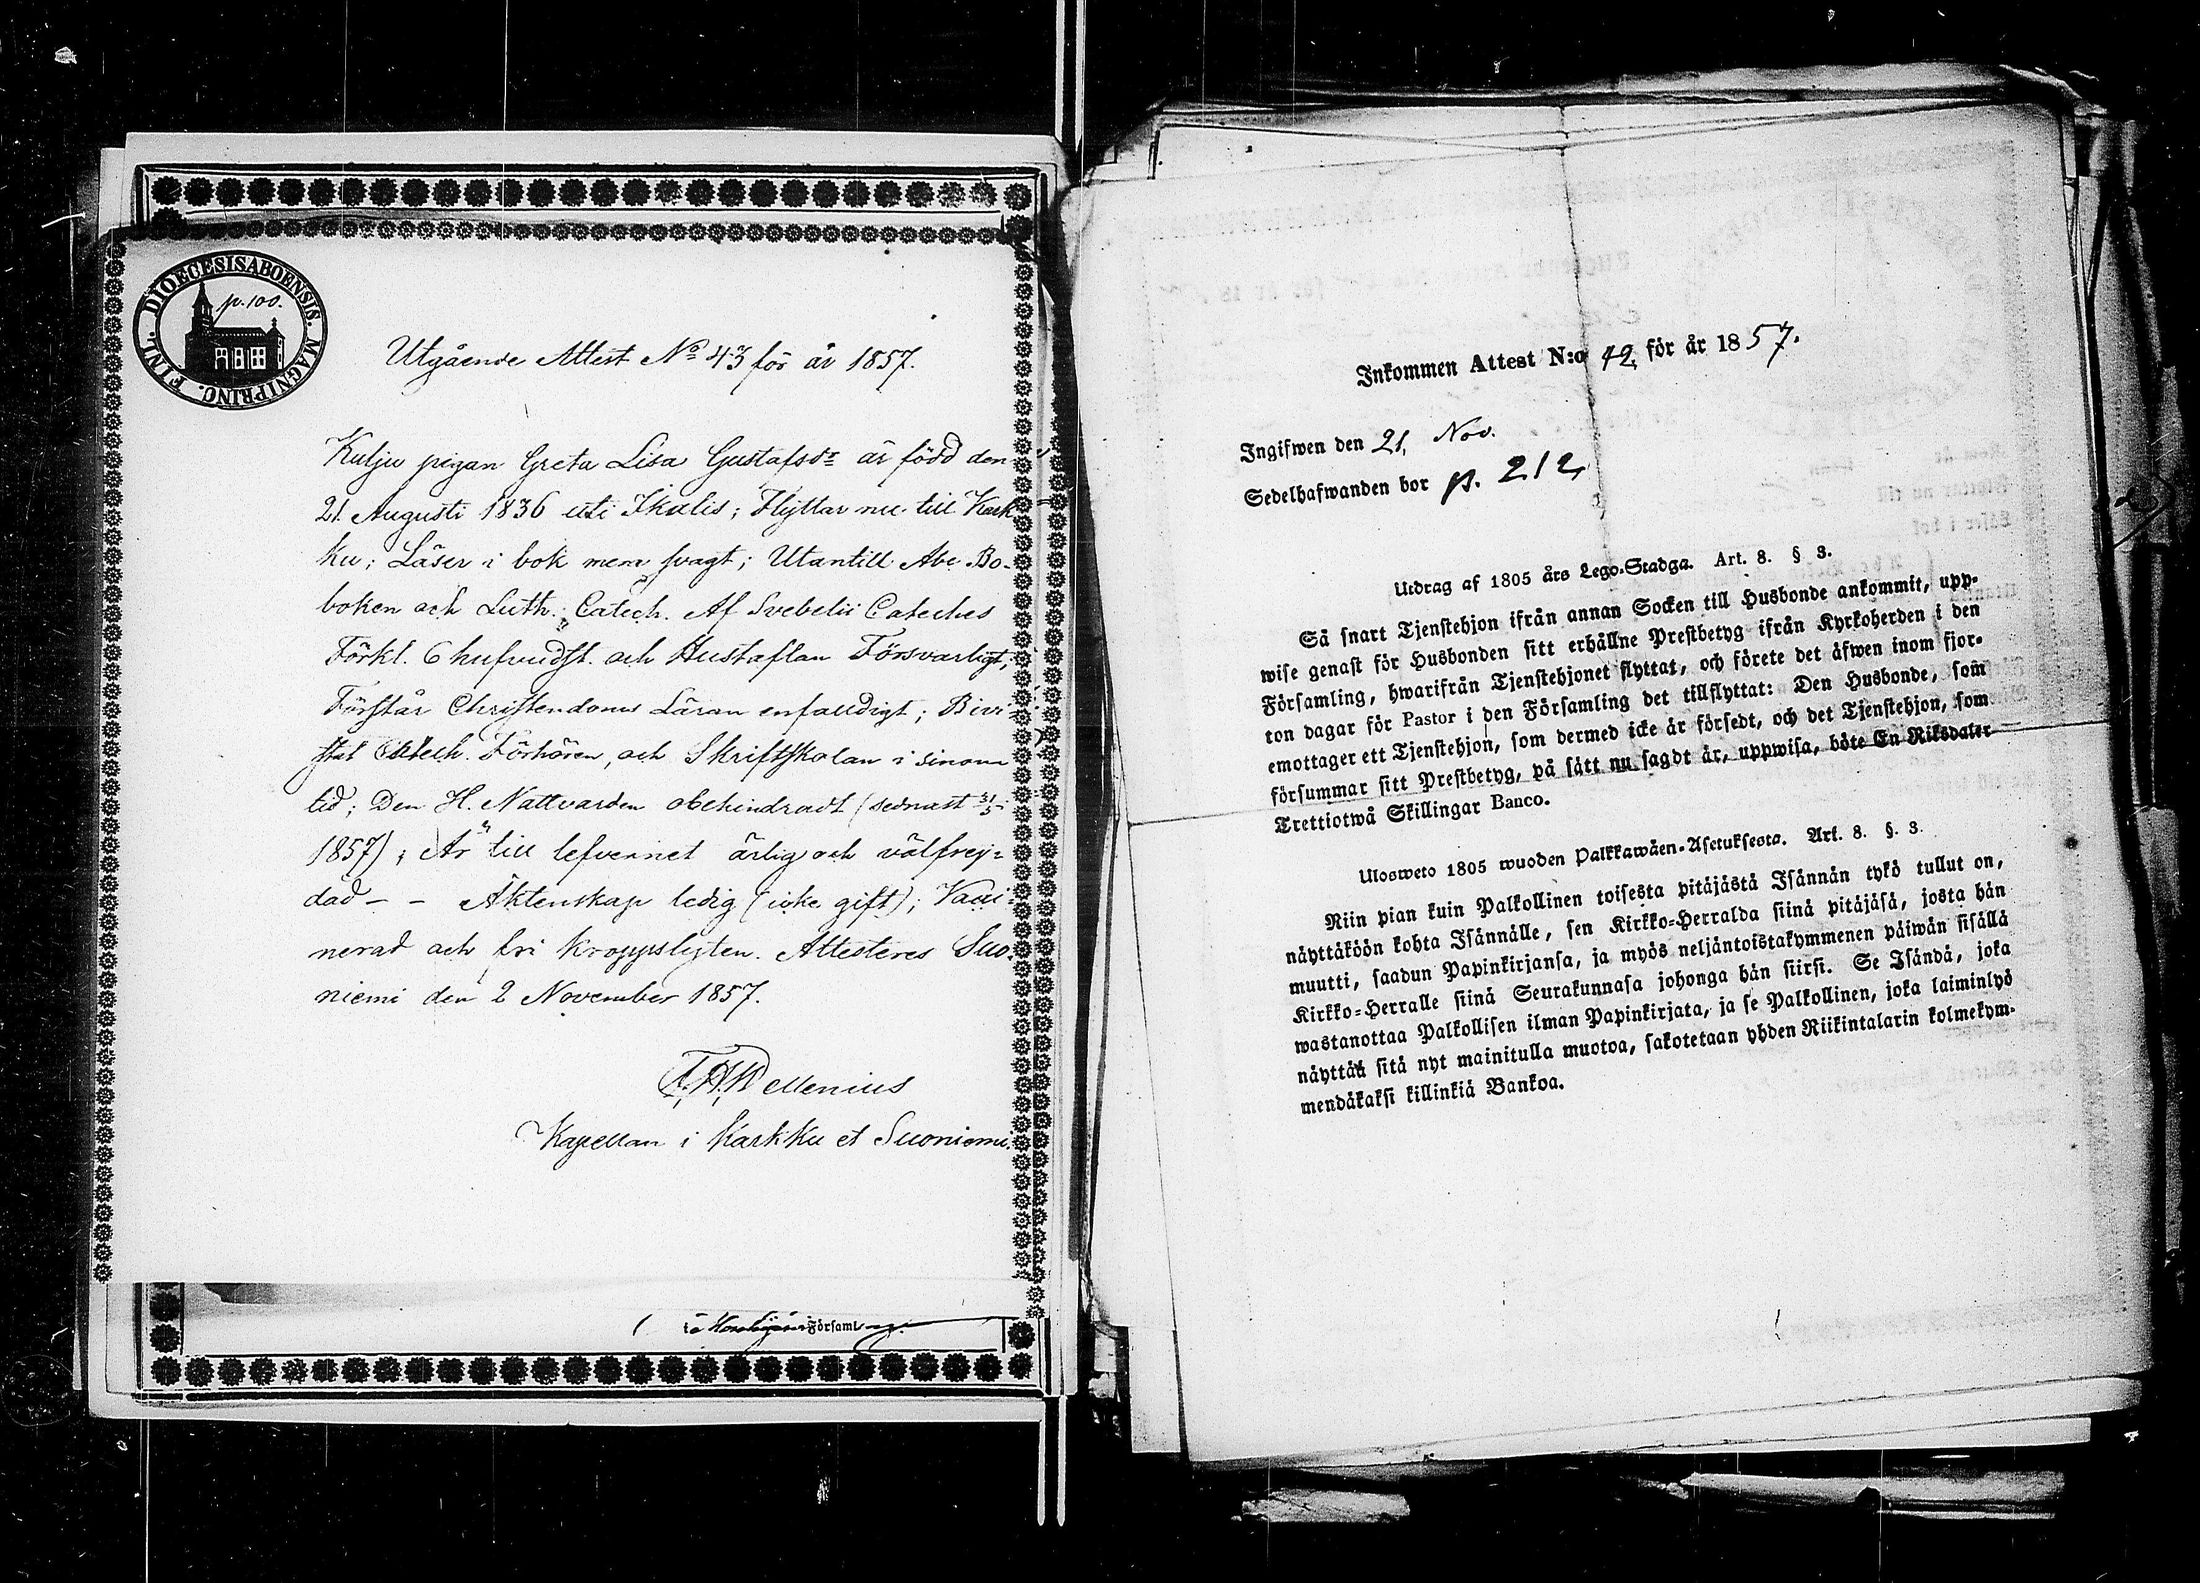 DIOECESIS ABOENSIS. MAGNI PRINC. FINL.
p. 100.
Utgående Attest No 43 för år 1857.
Kulju pigan Greta Lisa Gustafsdr är född den
21 Augusti 1836 uti Ikalis; Flyttar nu till Kark
ku; Läser i bok men svagt; Utantill Abc Bo-
boken och Luth. Catech. Af Svebelii Cateches
Förkl. 6 hufvudst. och Hustaflan Försvarligt;
Förstår Christendoms Läran enfalldigt; Bivi-
stat Catech. Förhören, och Skriftskolan i sinom
tid; Den H. Nattvarden obehindradt (sednast 31/5
1857); Är till lefvernet ärlig och välfrej=
dad - - Äktenskap ledig (icke gift); Vacci=
nerad och fri kroppslyten. Attesteres Suo.
niemi den 2 November 1857.
Mellenius
Kapellan i Karkku et Suoniemi.
Församl
Inkommen Attest N:o 42 för år 1857.
Ingifwen den 21 Nov.
Sedelhafwanden bor p. 212
Utdrag af 1805 års Lego-Stadga. Art. 8. § 3.
Så snart Tjenstehjon ifrån annan Socken till Husbonde ankommit, upp-
wise genast för Husbonden sitt erhållne Prestbetyg ifrån Kyrkoherden i den
Församling, hwarifrån Tjenstehjonet flyttat, och förete det äfwen inom fjor-
ton dagar för Pastor i den Församling det tillflyttat: Den Husbonde, som
emottager ett Tjenstehjon, som dermed icke är försedt, och det Tjenstehjon, som
försummar sitt Prestbetyg, på sätt nu sagdt är, uppwisa, böte En Riksdaler
Trettiotwå Skillingar Banco.
Ulosweto 1805 wuoden Palkkawäen-Asetuksesta. Art. 8. §. 3.
Niin pian kuin Palkollinen toisesta pitäjästä Isännän tykö tullut on,
näyttäköön kohta Isännälle, sen Kirkko-Herralda siinä pitäjäsä, josta hän
muutti, saadun Papinkirjansa, ja myös neljäntoistakymmenen päiwän sisällä
Kirkko-Herralle siinä Seurakunnasa johonga hän siirsi. Se Isändä, joka
wastanottaa Palkollisen ilman Papinkirjata, ja se Palkollinen, joka laiminlyö
näyttää sitä nyt mainitulla muotoa, sakotetaan yhden Riikintalarin kolmekym-
mendäkaksi killinkiä Bankoa.